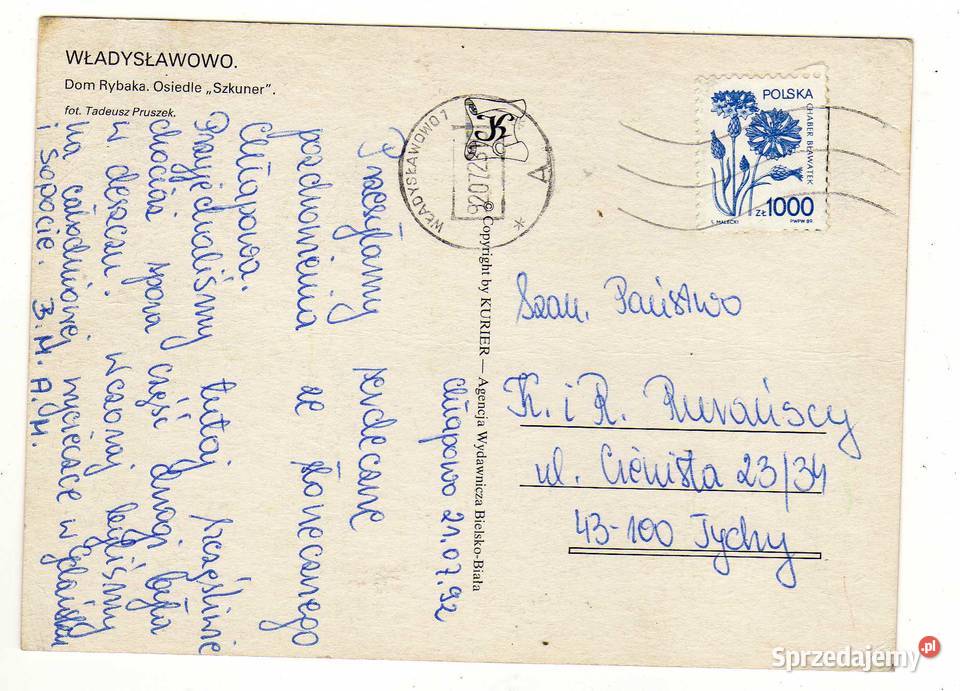 WŁADYSŁAWOWO.
Dom Rybaka. Osiedle „Szkuner".
fot. Tadeusz Pruszek.
Chłapowo 21.07.92
Przesyłamy serdeczne
pozdrowienia ze słonecznego
Chłapowa.
Przyjechaliśmy tutaj szczęśliwie
chociaż spora część drogi była
w deszczu. Wczoraj byliśmy
na całodniowej wycieczce w Gdańsku
i Sopocie. B. M. A. M.
© Copyright by KURIER — Agencja Wydawnicza Bielsko-Biała
WŁADYSŁAWOWO 1
A
POLSKA
CHABER BŁAWATEK
ZŁ 1000
S. MAŁECKI PWPW 89.
Szan. Państwo
K. i R.
ul. Cienista 23/34
43-100 Tychy
Sprzedajemy.pl